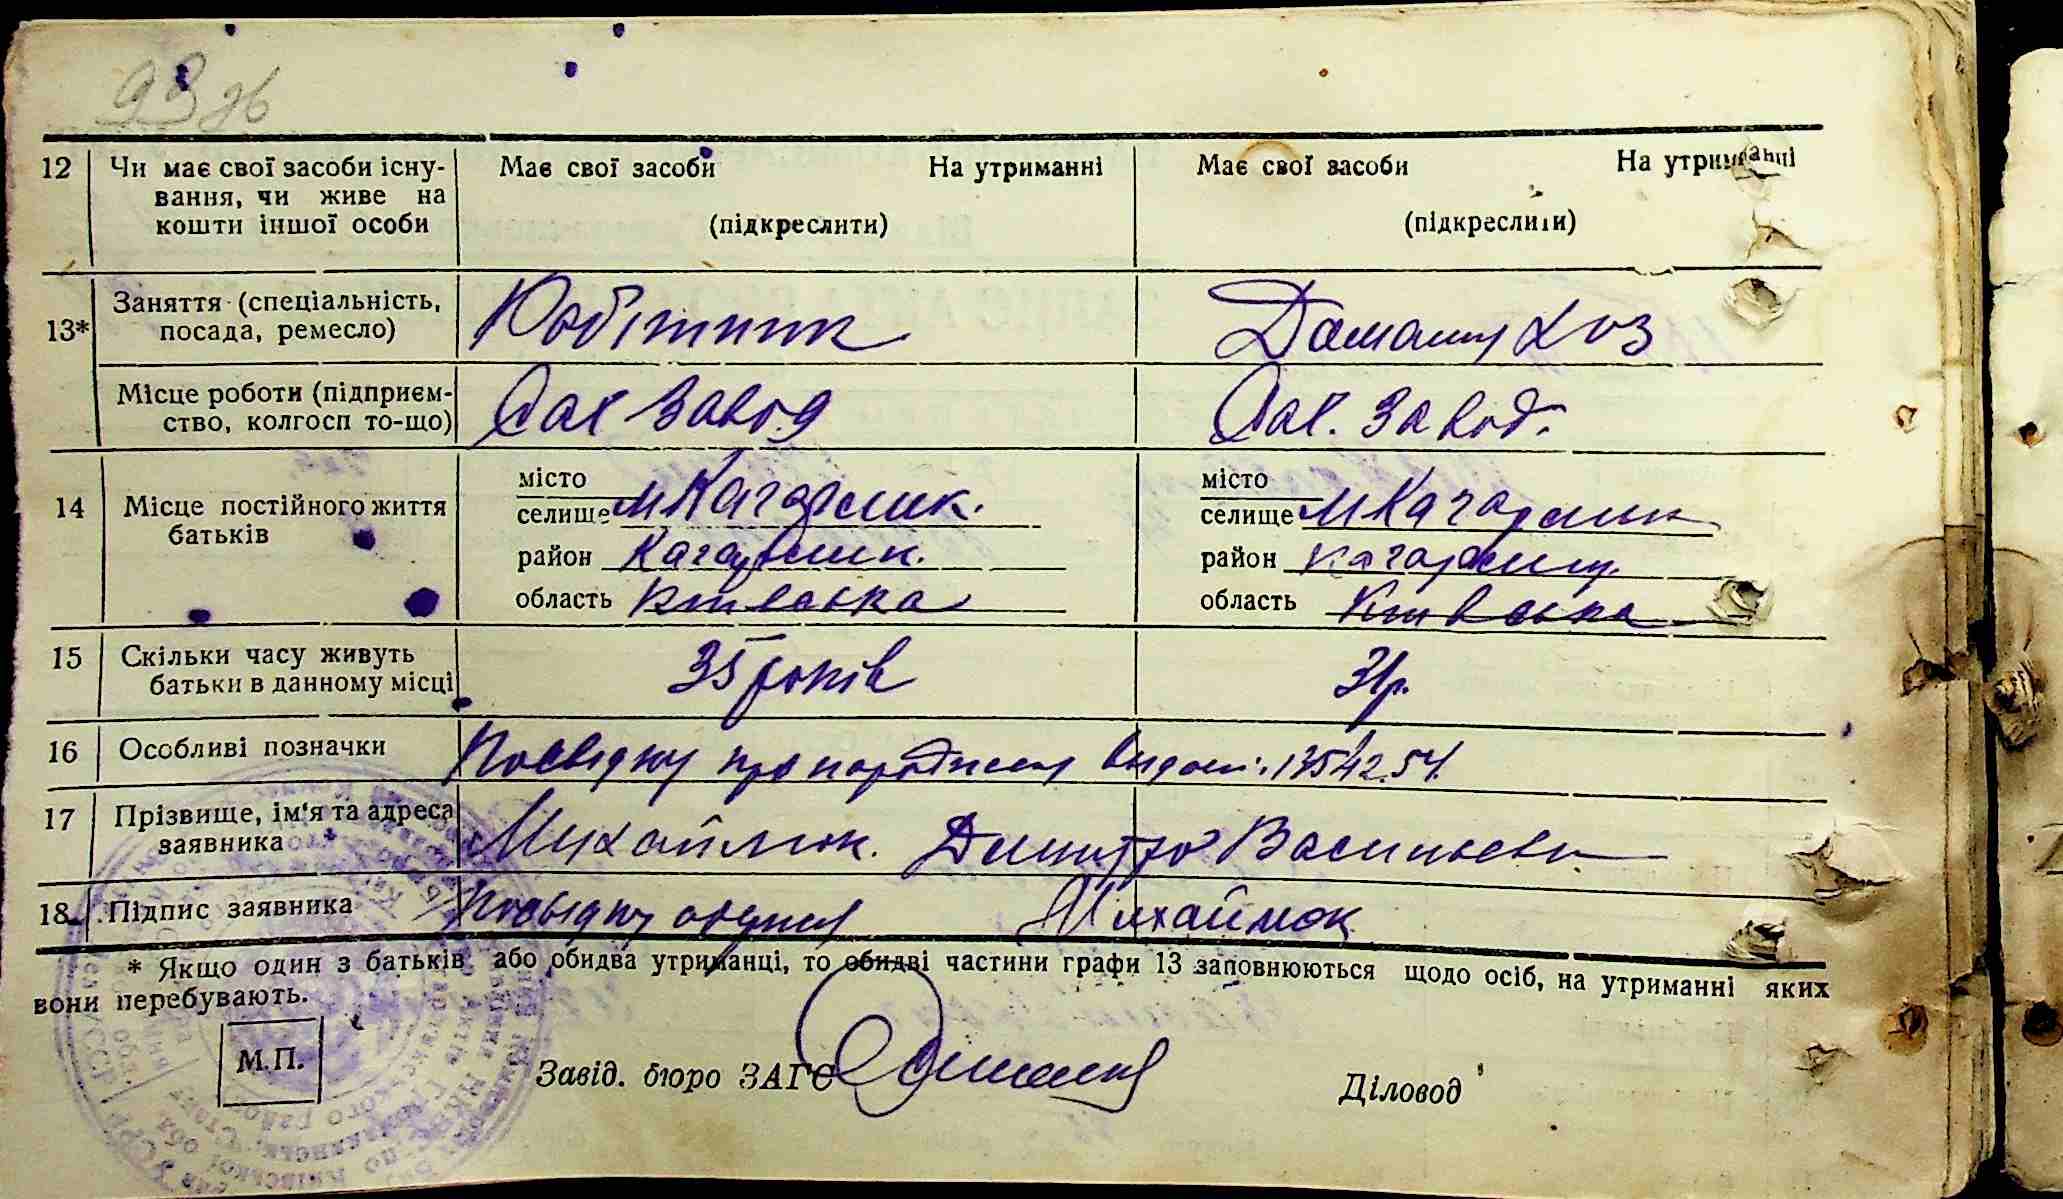 93 зв
12 Чи має свої засоби існу- Має свої засоби На утриманні Має свої засоби На утриманні
вання, чи живе на
кошти іншої особи (підкреслити) (підкреслити)
13* Заняття (спеціальність, Робітник Домашн хоз
посада, ремесло)
Місце роботи (підприєм- Сах завод Сах. завод.
ство, колгосп то-що)
14 Місце постійного життя місто місто
батьків селище м Кагарлик. селище м Кагарлик
район Кагарлик. район Кагарлиц.
область Київська область Київська
15 Скільки часу живуть 35 років 31р.
батьки в данному місці
16 Особливі позначки Посвідку про народження видан.
17 Прізвище, ім'я та адреса Михайлюк. Дмитро Васильєв
заявника
18. Підпис заявника Посвідку одержав Михайлюк
* Якщо один з батьків або обидва утриманці, то обидві частини графи 13 заповнюються щодо осіб, на утриманні яких
вони перебувають.
М.П.
Завід. бюро ЗАГС Діловод